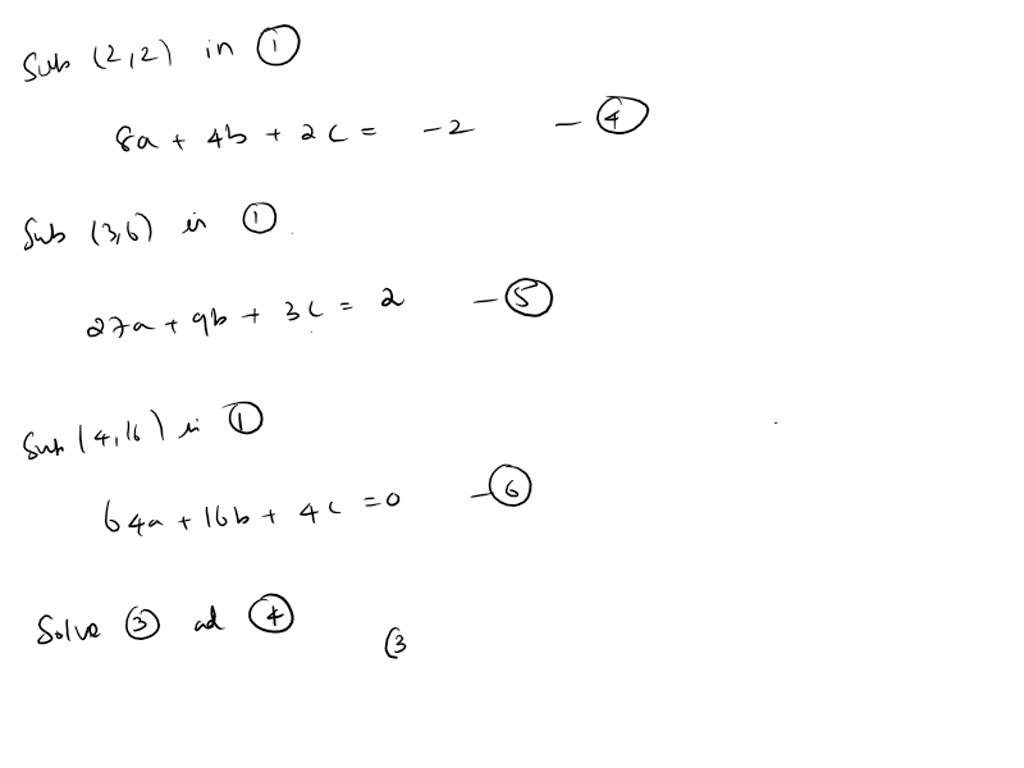 Sub (2,2) in ①
8a + 4b + 2c = -2 - ④
Sub (3,6) in ①
27a + 9b + 3c = 2 - ⑤
Sub (4,16) in ①
64a + 16b + 4c = 0 - ⑥
Solve ③ ad ④ (3